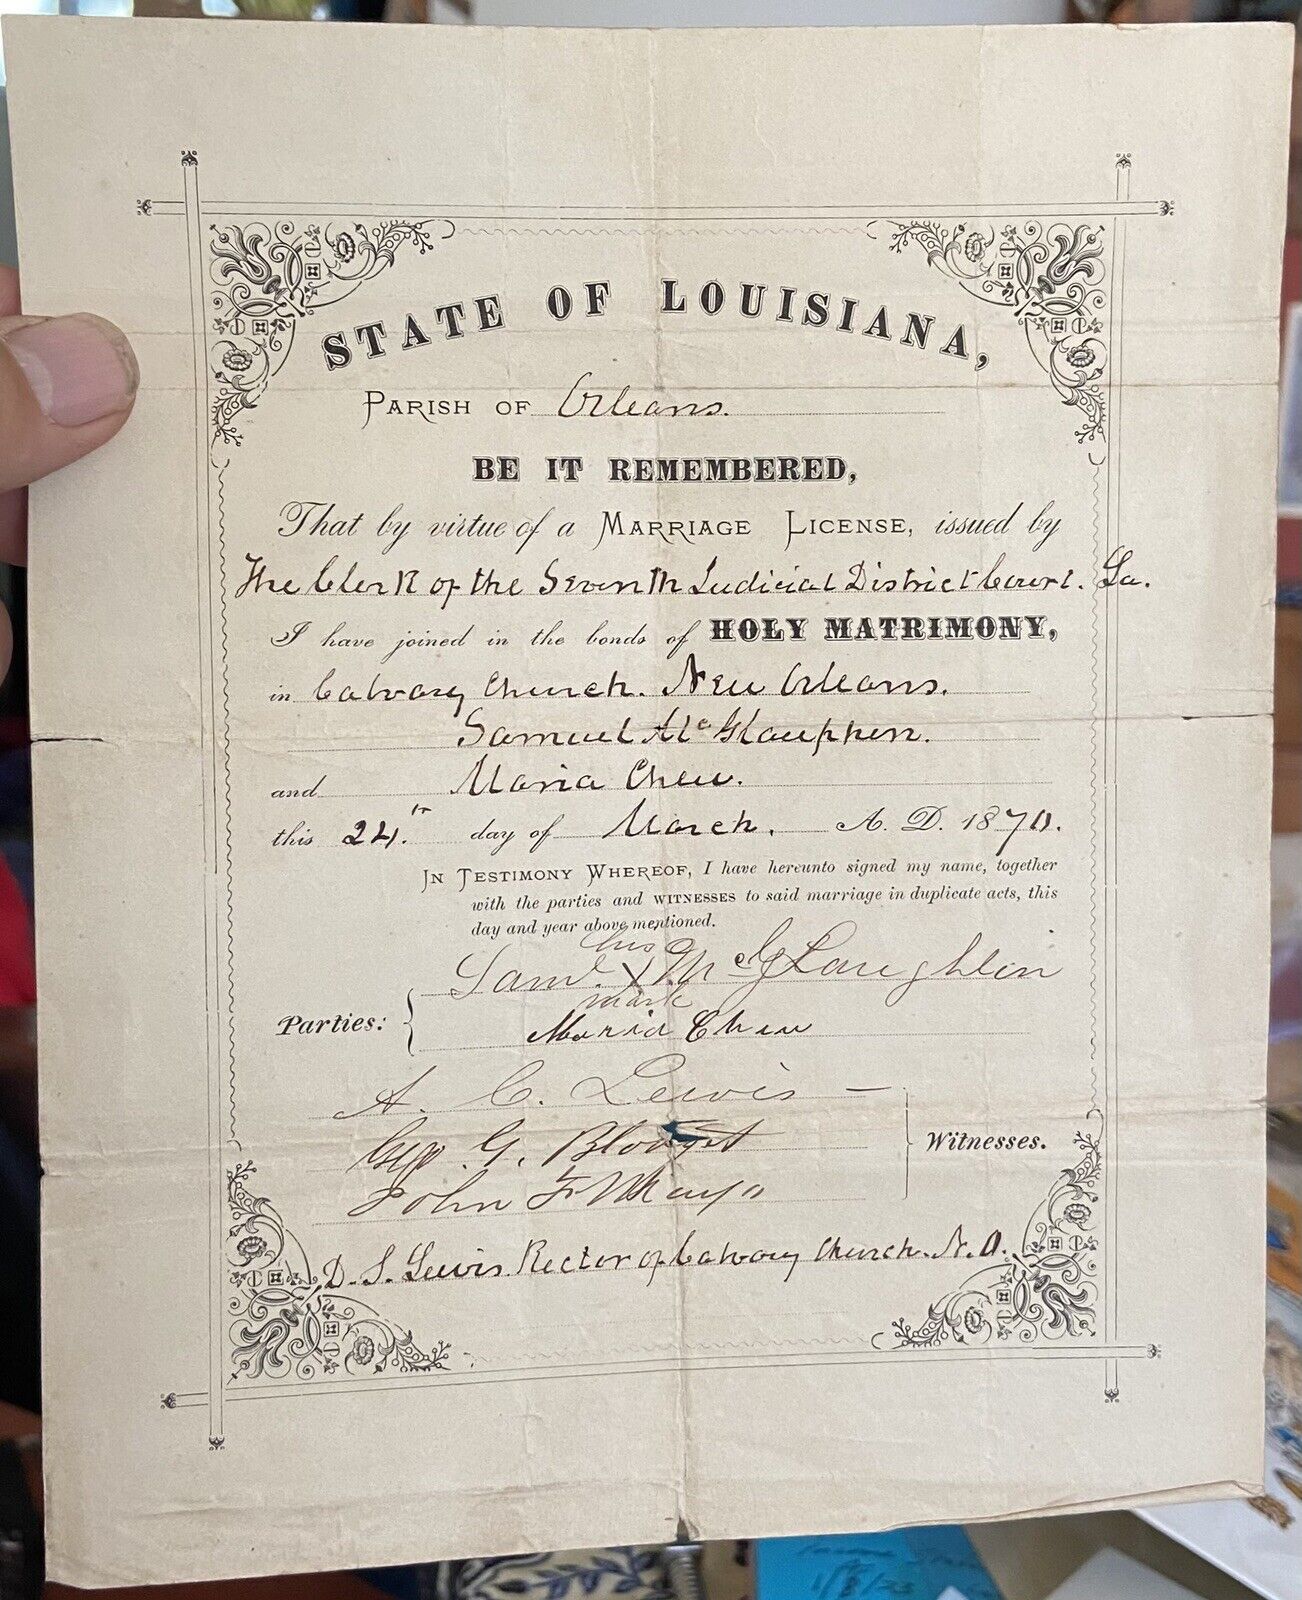 STATE OF LOUISIANA,
PARISH OF Orleans.
BE IT REMEMBERED,
That by virtue of a MARRIAGE LICENSE, issued by
The Clerk of the Seventh Judicial District Court. La.
I have joined in the bonds of HOLY MATRIMONY,
in Calvary Church. New Orleans.
Samuel McGlauphen.
and Maria Chew.
this 24.th day of March. A. D. 1870.
IN TESTIMONY WHEREOF, I have hereunto signed my name, together
with the parties and WITNESSES to said marriage in duplicate acts, this
day and year above mentioned.
his
Saml. X McGLaughlin
mark
Parties:
Maria Chew
A. C. Lewis
Geo. G. Blodget
Witnesses.
John F Mayo
D. S. Lewis Rector of Calvary Church. N. O.